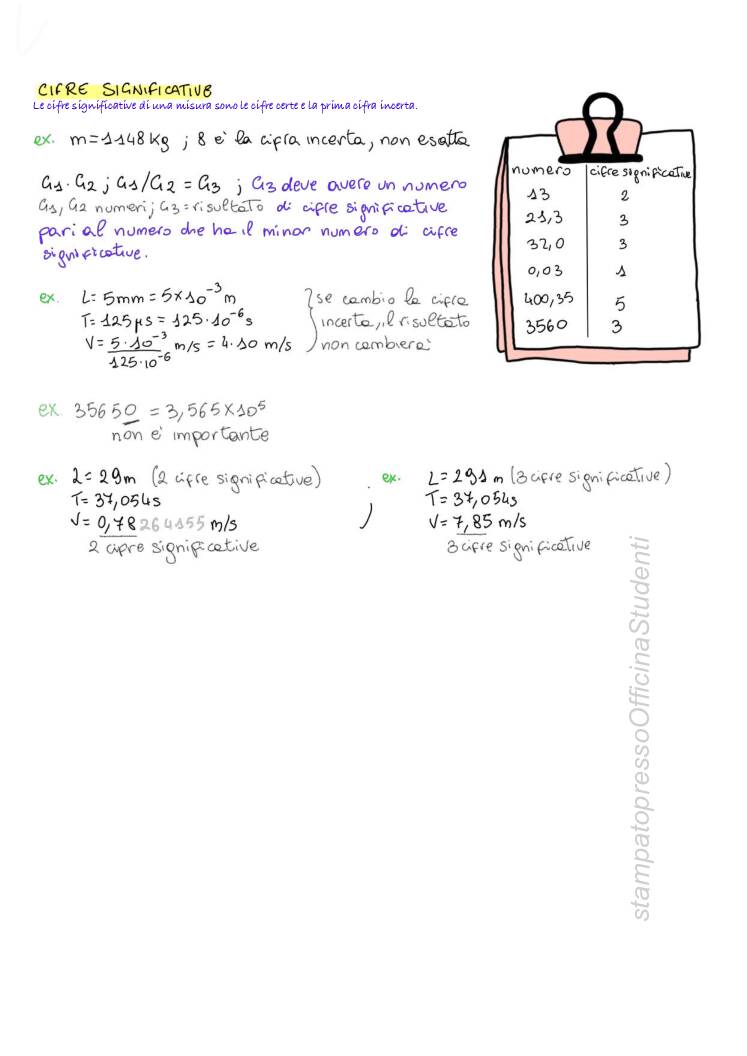 CIFRE SIGNIFICATIVE
Le cifre significative di una misura sono le cifre certe e la prima cifra incerta.
ex. m=1148 Kg ; 8 è la cifra incerta, non esatta
G1·G2 ; G1/G2 = G3 ; G3 deve avere un numero
G1, G2 numeri ; G3=risultato di cifre significative
pari al numero che ha il minor numero di cifre
significative.
ex. L=5mm=5×10⁻³ m
T=125μs=125·10⁻⁶s
V=5·10⁻³/125·10⁻⁶ m/s = 4·10 m/s
se cambio la cifra
incerta, il risultato
non cambierà
numero cifre significative
13 2
21,3 3
32,0 3
0,03 1
400,35 5
3560 3
ex. 35650 = 3,565×10⁵
non è importante
ex. L=29m (2 cifre significative)
T=37,054s
V=0,78264155 m/s
2 cifre significative
ex. L=291m (3 cifre significative)
T=37,054s
V=7,85 m/s
3 cifre significative
stampatopressoOfficinaStudenti